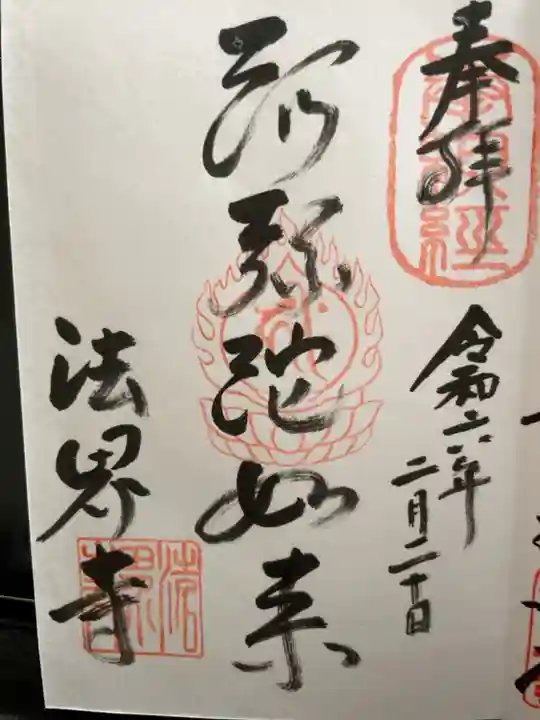 奉拝
令和六年
二月二十日
阿弥陀如来
法界寺
法界寺